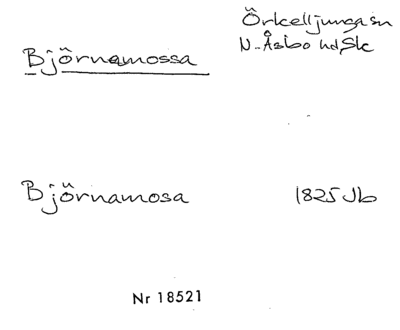 Örkelljunga sn
Björnamossa N. Åsbo hd, Sk
Björnamosa 1825 Jb
Nr 18521